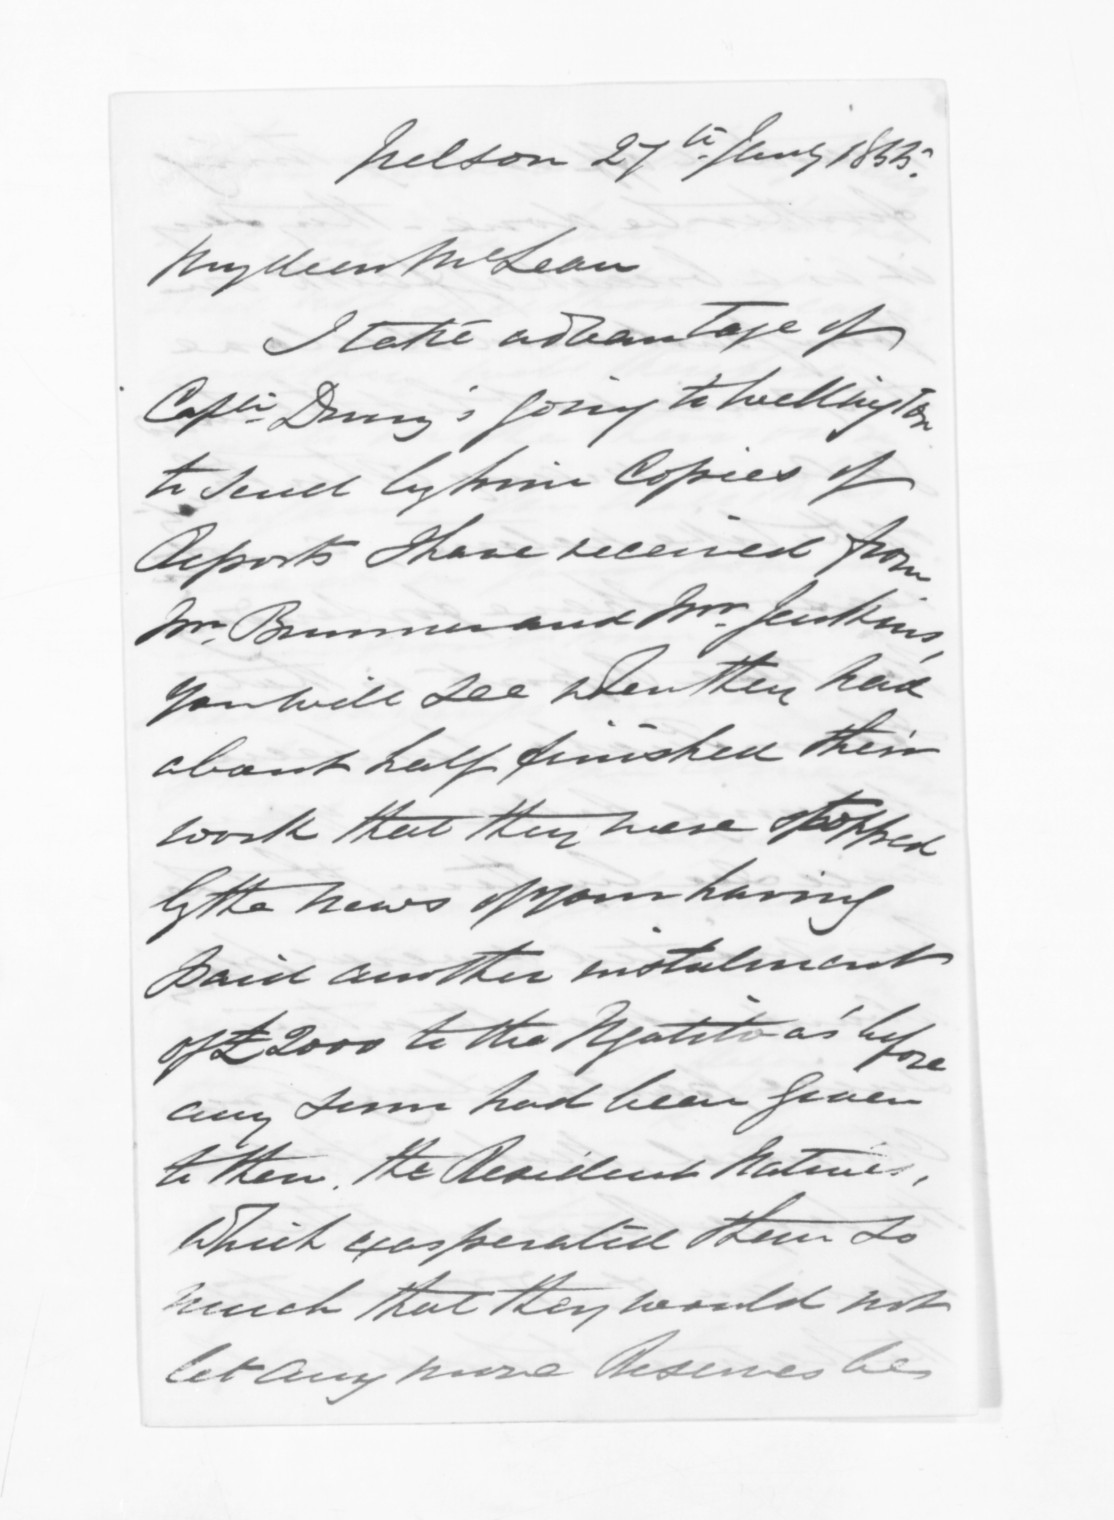 Nelson 27th Jany 1855.
My dear McLean
I take advantage of
Captn Drury's going to Wellington
to send by him Copies of
Reports I have received from
Mr. Brunner and Mr. Jenkins,
you will see when they had
about half finished their
work that they were stopped
by the news of your having
paid another instalment
of £2000 to the Ngatitoa's before
any sum had been given
to them. the Resident Natives,
which exasperated them so
much that they would not
let any more Reserves be